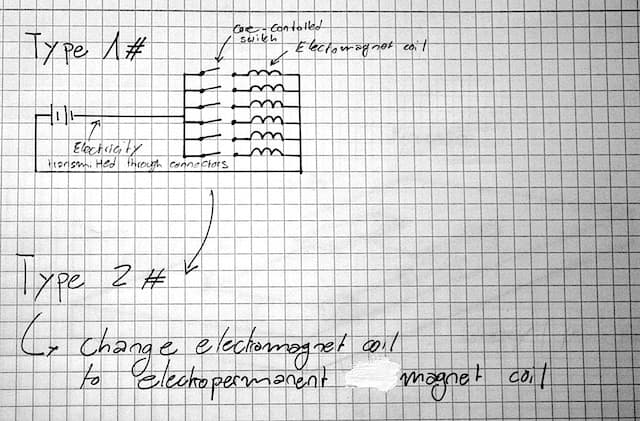 Type 1#
Coe-contolled
switch
Electomagnet coil
Electricity
transmitted through connectors
Type 2#
↳ change electromagnet coil
to electropermanent magnet coil